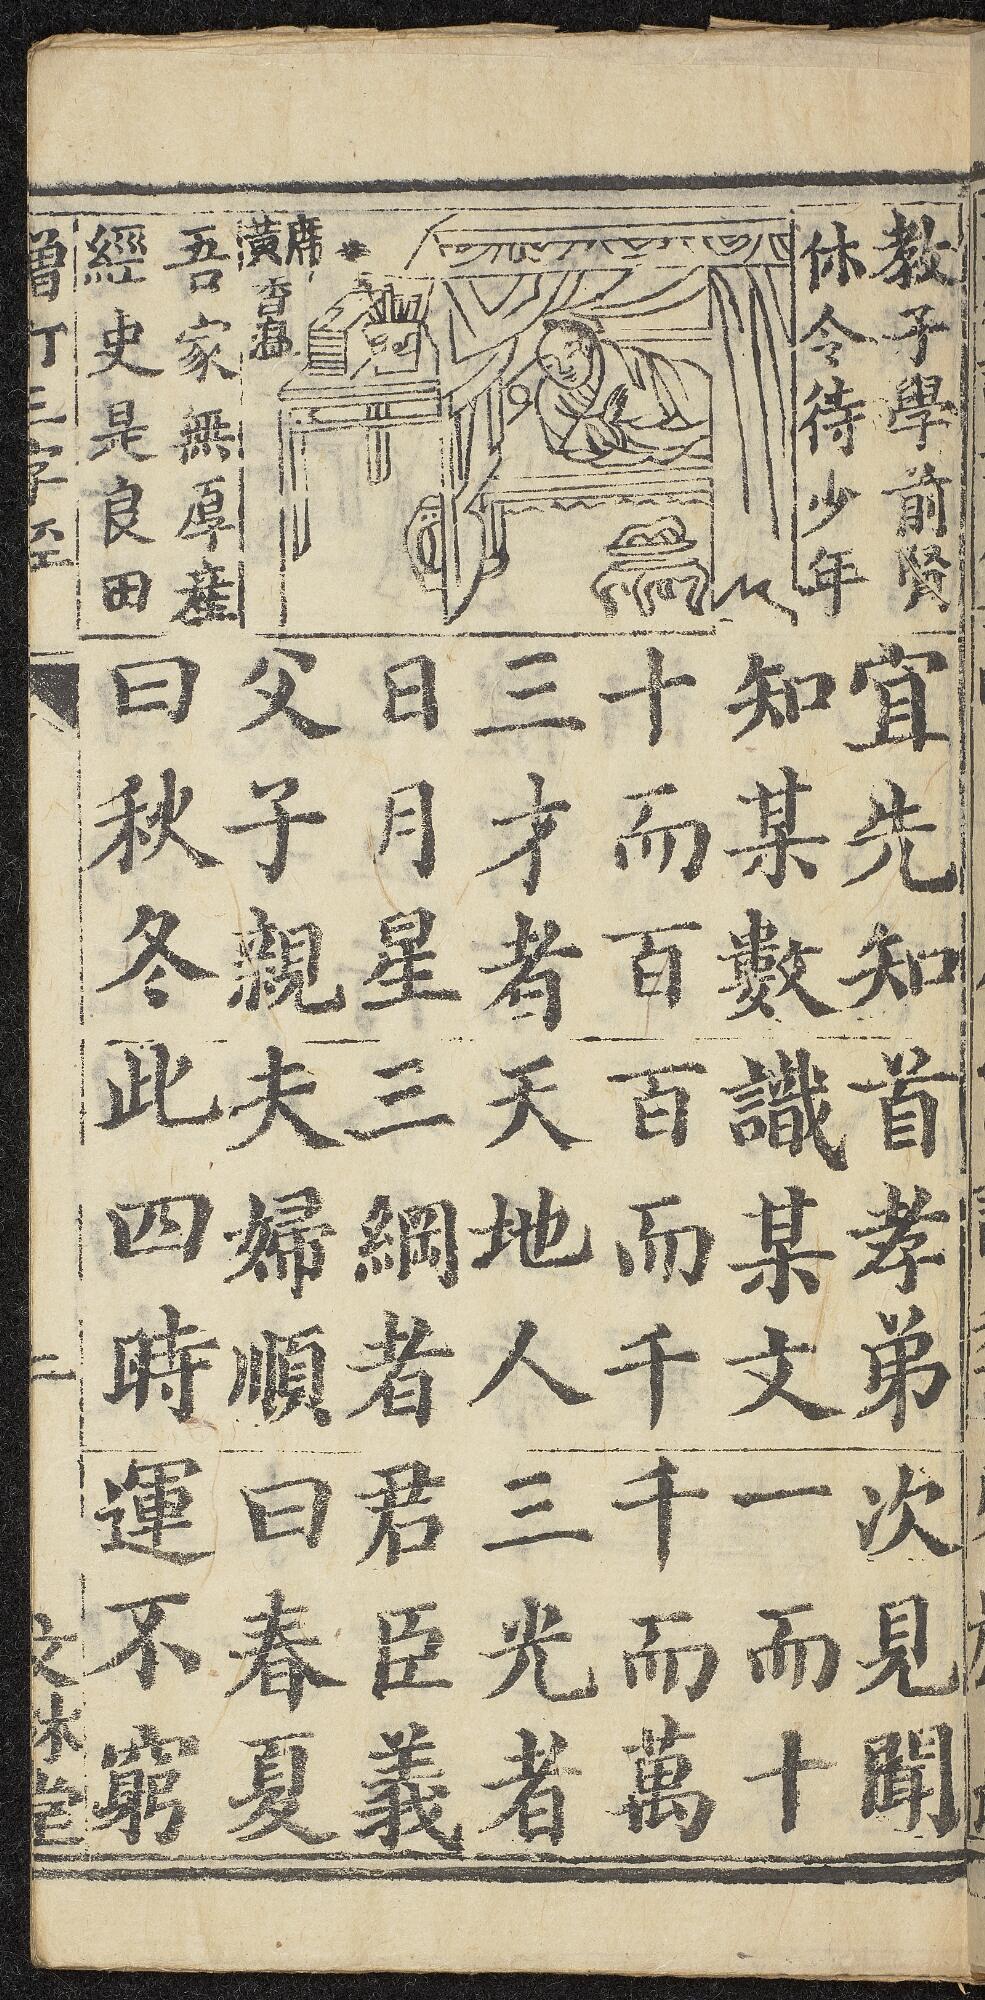 教子學前賢
休令待少年
席
黃香溫
吾家無厚產
經史是良田
宜先知首孝弟次見聞
知某數識某文一而十
十而百百而千千而萬
三才者天地人三光者
日月星三綱者君臣義
父子親夫婦順曰春夏
曰秋冬此四時運不窮
增訂三字經
二
文林堂